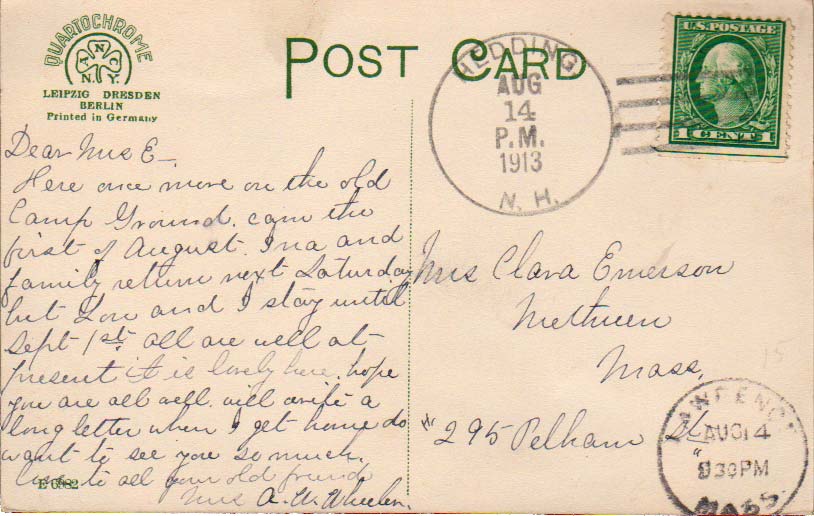 QUARTOCHROME
A N C
N.Y.
LEIPZIG DRESDEN
BERLIN
Printed in Germany
POST CARD
HEDDING
AUG
14
P.M.
1913
N. H.
U.S. POSTAGE
1 CENT 1
Dear Mrs E—
Here once more on the old
Camp Ground. cam the
first of August. Ina and
family return next Saturday
but Lou and I stay until
Sept 1st. all are well at
present it is lovely here. hope
you are all well. will write a
long letter when I get home do
want to see you so much.
Love to all your old friend
Mrs A. W. Wheeler.
E 6982
Mrs Clara Emerson
Methuen
Mass,
"295 Pelham St"
15
AUG 14
30 PM
MASS.